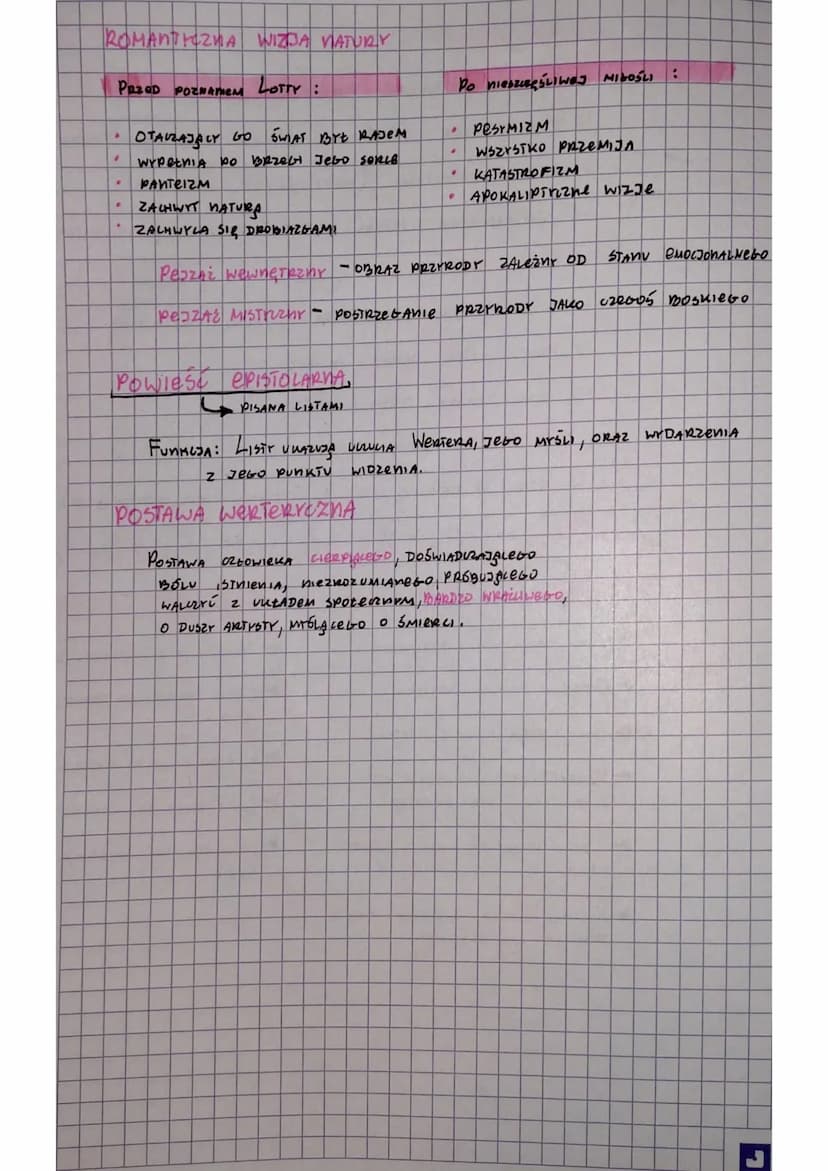 ROMANTYCZNA WIZJA NATURY
PRZED POZNANIEM LOTTY :
OTACZAJĄCY GO ŚWIAT BYŁ RAJEM
WYPEŁNIA PO BRZEGI JEGO SERCE
PANTEIZM
ZACHWYT NATURĄ
ZACHWYCA SIĘ DROBIAZGAMI
PO NIESZCZĘŚLIWEJ MIŁOŚCI :
PESYMIZM
WSZYSTKO PRZEMIJA
KATASTROFIZM
APOKALIPTYCZNE WIZJE
PEJZAŻ WEWNĘTRZNY - OBRAZ PRZYRODY ZALEŻNY OD STANU EMOCJONALNEGO
PEJZAŻ MISTYCZNY - POSTRZEGANIE PRZYRODY JAKO CZEGOŚ BOSKIEGO
POWIEŚĆ EPISTOLARNA
PISANA LISTAMI
FUNKCJA: LISTY UKAZUJĄ UCZUCIA WERTERA, JEGO MYŚLI, ORAZ WYDARZENIA
Z JEGO PUNKTU WIDZENIA.
POSTAWA WERTERYCZNA
POSTAWA CZŁOWIEKA CIERPIĄCEGO, DOŚWIADCZAJĄCEGO
BÓLU ISTNIENIA, NIEZROZUMIANEGO, PRÓBUJĄCEGO
WALCZYĆ Z UKŁADEM SPOŁECZNYM, BARDZO WRAŻLIWEGO,
O DUSZY ARTYSTY, MYŚLĄCEGO O ŚMIERCI.